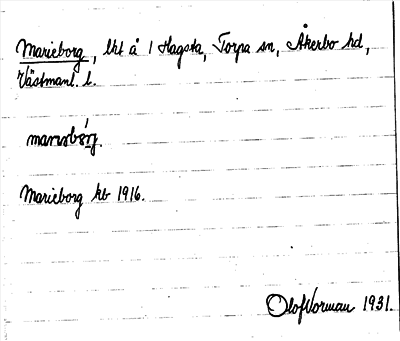 Marieborg, lht å 1 Hagsta, Torpa sn, Åkerbo hd,
Västmanl. l.
Marieborg kb 1916.
Olof Norman 1931.